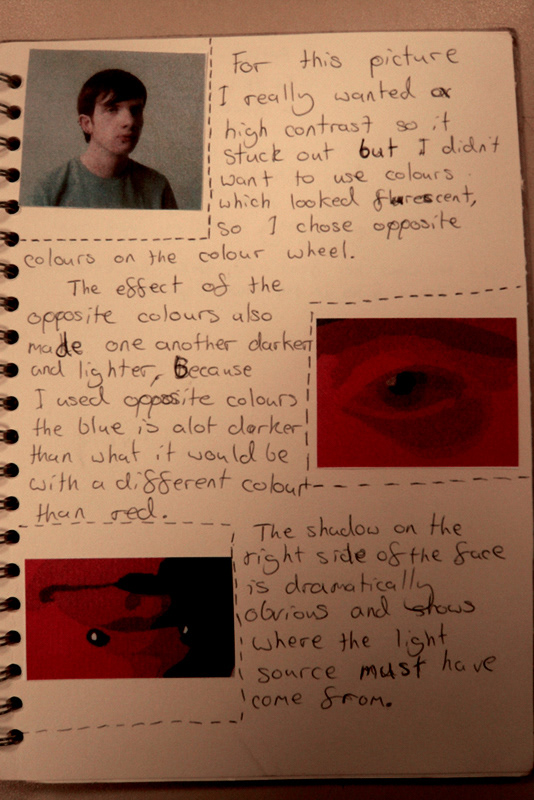 For this picture
I really wanted a
high contrast so it
stuck out but I didn't
want to use colours
which looked flurescent,
so I chose opposite
colours on the colour wheel.
The effect of the
opposite colours also
made one another darker
and lighter, Because
I used opposite colours
the blue is alot darker
than what it would be
with a different colour
than red.
The shadow on the
right side of the face
is dramatically
obvious and shows
where the light
source must have
come from.